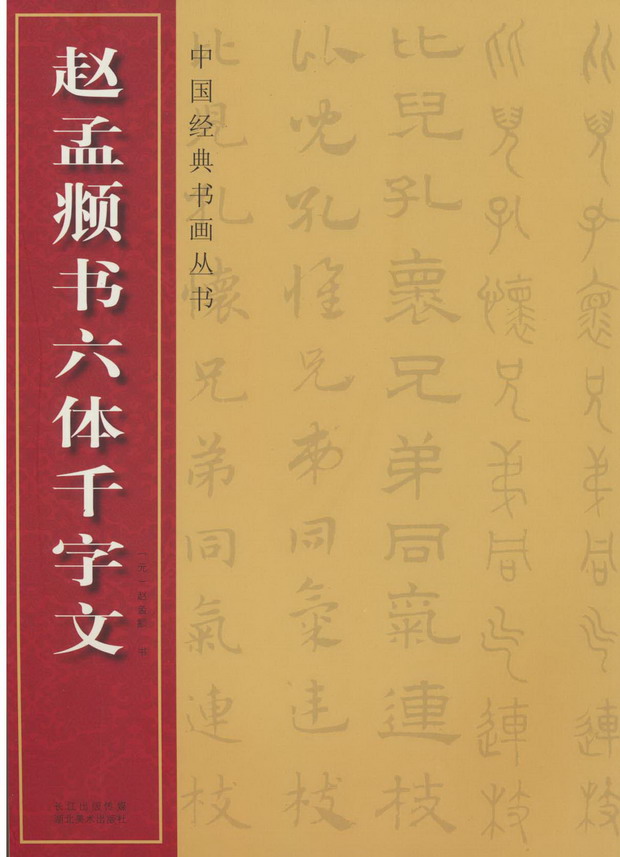 赵孟𫖯书六体千字文
（元）赵孟𫖯 书
长江出版传媒
湖北美术出版社
中国经典书画丛书
比兒孔褱兄弟同氣連枝
比兒孔懷兄弟同氣連枝
比兒孔褱兄弟同氣連枝
比兒孔懷兄弟同氣連枝
比兒孔懷兄弟同氣連枝